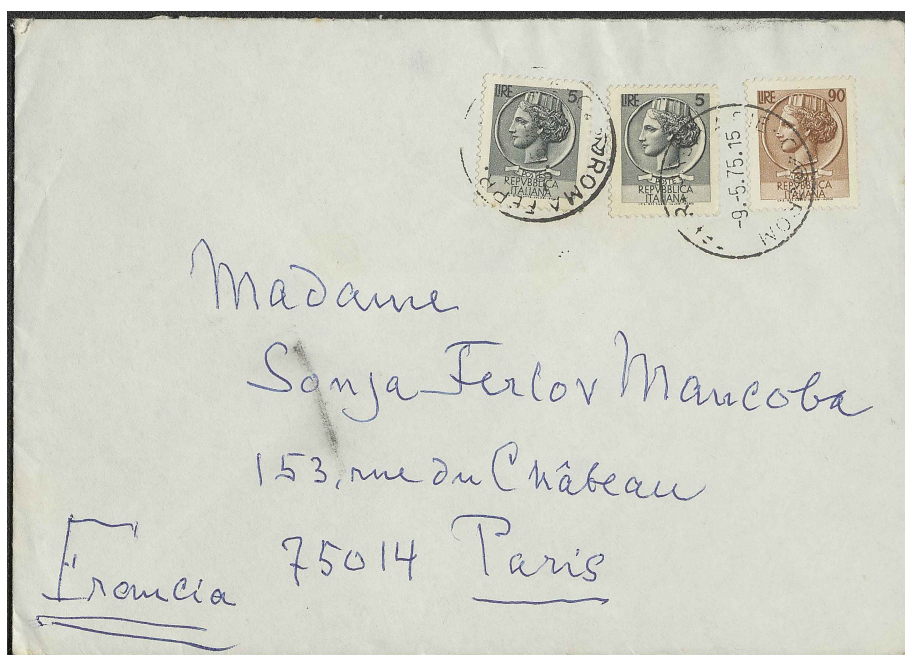 LIRE 5
POSTE
REPVBBLICA
ITALIANA
LIRE 5
POSTE
REPVBBLICA
ITALIANA
LIRE 90
REPVBBLICA
ITALIANA
ROMA FERR.
-9.-5.75.15
ROM
Madame
Sonja Ferlov Mancoba
153, rue du Château
75014 Paris
Francia